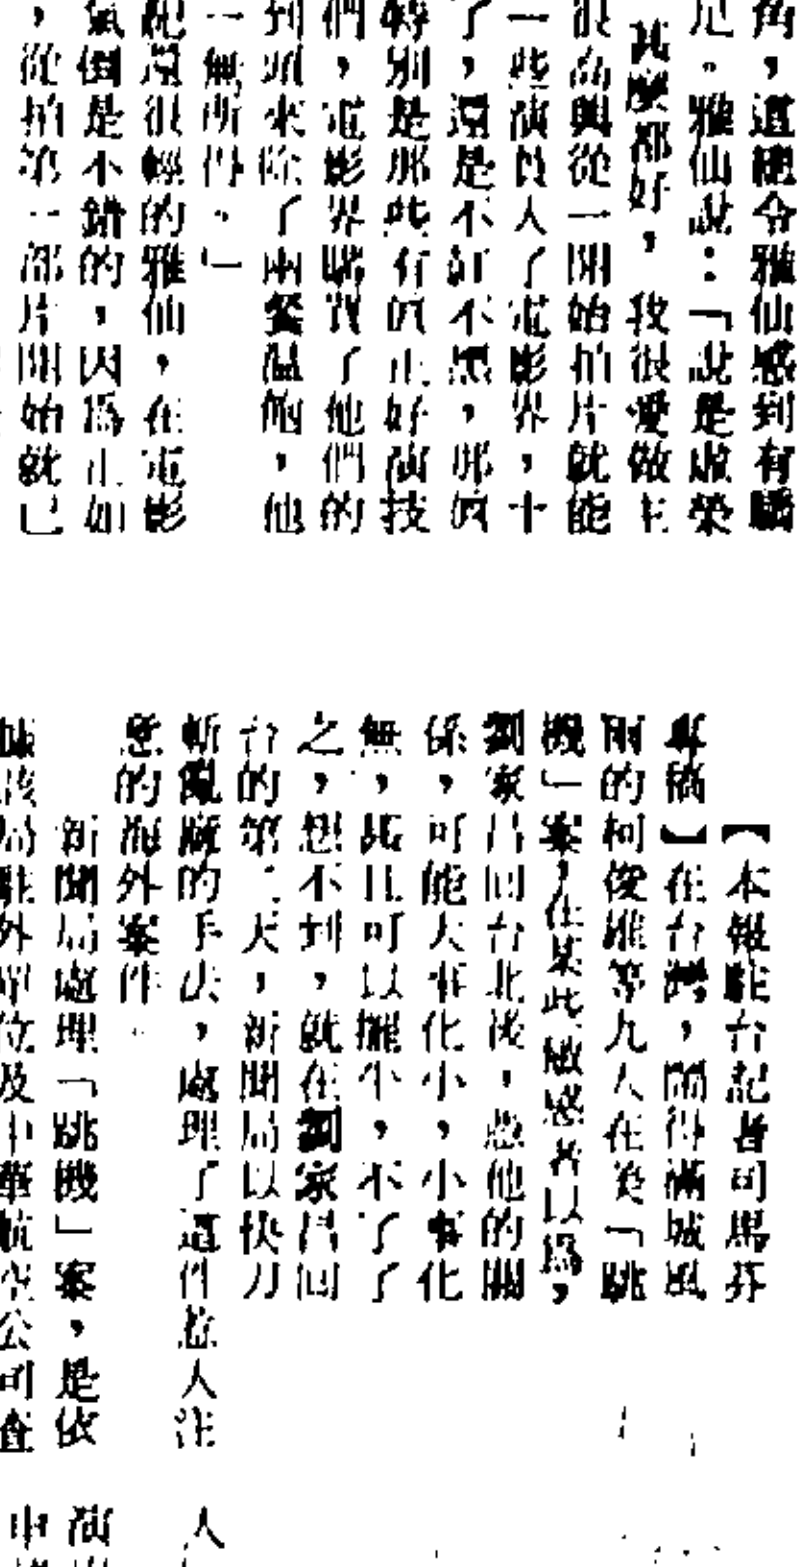 角，這種令雅仙感到有驕
足。雅仙說：「說是虛榮
甚麼都好，我很愛做主
很高興從一開始拍片就能
一些演員入了電影界，十
了，還是不紅不黑，那真
特別是那些有真正好演技
們，電影界賭買了他們的
到頭來除了兩餐溫飽，他
一無所得。」
紀還很輕的雅仙，在電影
氣倒是不錯的，因為正如
，從拍第一部片開始就已
【本報駐台記者司馬芬
專稿】在台灣，鬧得滿城風
雨的柯俊雄等九人在美「跳
機」案，在某些敏感者以為，
劉家昌回台北後，憑他的關
係，可能大事化小，小事化
無，甚且可以擺平，不了了
之，想不到，就在劉家昌回
台的第二天，新聞局以快刀
斬亂麻的手法，處理了這件惹人注
意的海外案件。
新聞局處理「跳機」案，是依
據該局駐外單位及中華航空公司查
人
演
中